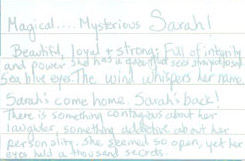 Magical.... Mysterious Sarah!
Beautiful, loyal + strong; Full of integrity
and power she has a that sees
Sea blue eyes. The wind whispers her name
Sarah's come home. Sarah's back!
There is something contagious about her
laughter, something addictive about her
personality. She seemed so open, yet her
eyes held a thousand secrets.